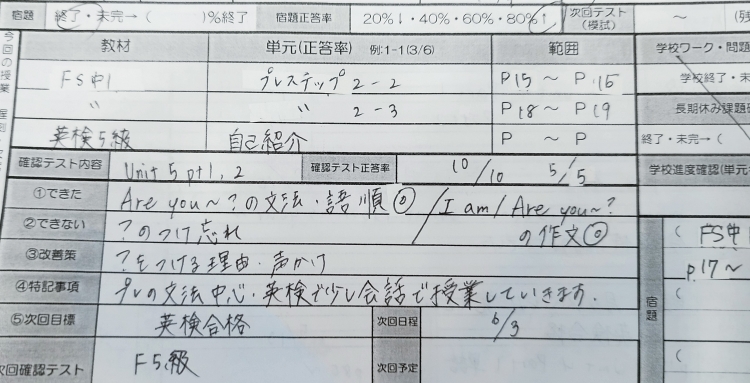 宿題 終了・未完→( )%終了 宿題正答率 20%↓・40%・60%・80%↑ 次回テスト(模試) ~
教材 単元(正答率) 例:1-1(3/6) 範囲 学校ワーク・問題
FS中1 プレステップ 2-2 P15 ~ P.16 学校終了・未
〃 〃 2-3 P18 ~ P19 長期休み課題
英検5級 自己紹介 P ~ P 終了・未完→(
確認テスト内容 Unit 5 pt 1, 2 確認テスト正答率 10/10 5/5 学校進度確認(単元
①できた Are you~?の文法・語順◎ / I am / Are you~?の作文◎
②できない ?のつけ忘れ
( FS中1
③改善策 ?をつける理由・声かけ
P.17~
④特記事項 プレの文法中心・英検で少し会話で授業していきます.
宿題
⑤次回目標 英検合格 次回日程 6/3
次回確認テスト F5級 次回予定